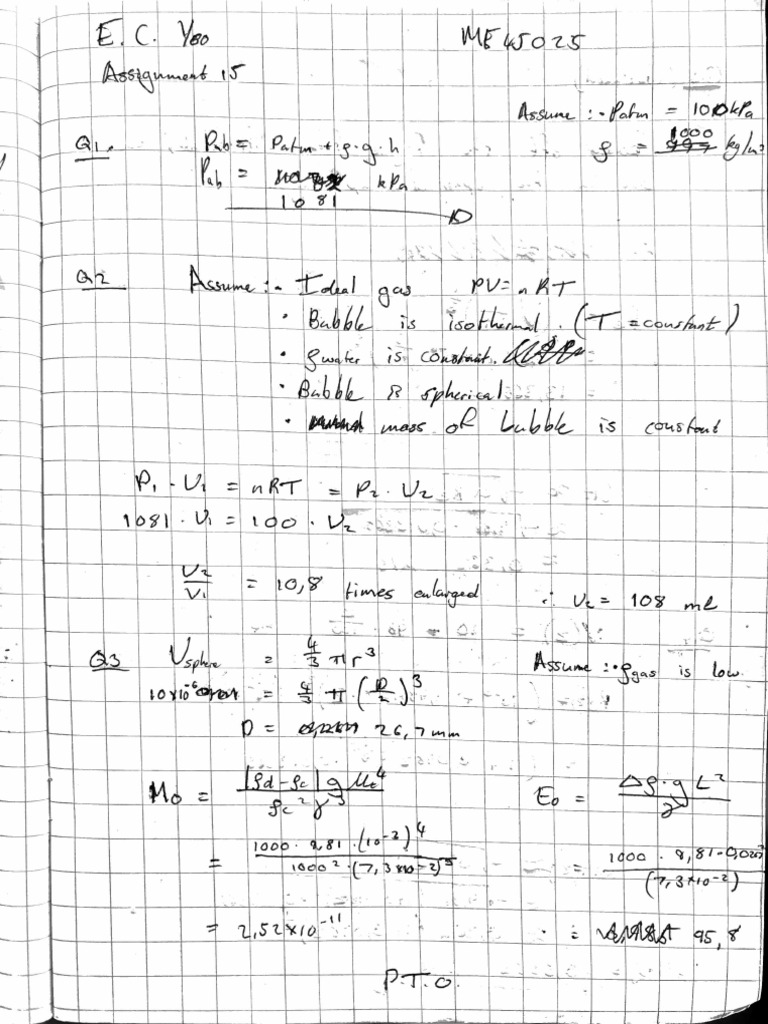 E. C. Yeo ME45025
Assignment 15
Assume :- Patm = 100 kPa
ρ = 1000 kg/m³
Q1. Pab = Patm + ρ·g·h
Pab = kPa
1081
Q2 Assume :- Ideal gas PV = nRT
· Bubble is isothermal. (T = constant)
· ρwater is constant.
· Bubble is spherical
· mass of bubble is constant
P₁ · V₁ = nRT = P₂ · V₂
1081 · V₁ = 100 · V₂
V₂/V₁ = 10,8 times enlarged ∴ V₂ = 108 ml
Q3 Vsphere = 4/3 πr³ Assume :· ρgas is low.
10x10⁻⁶ = 4/3 π (D/2)³
D = 26,7 mm
Mo = |ρd-ρc| g μc⁴ / ρc² γ³ Eo = Δρ·g L² / γ
= 1000 · 9,81 · (10⁻³)⁴ / 1000² · (7,3x10⁻²)³ = 1000 · 9,81 · 0,027² / (7,3x10⁻²)
= 2,52x10⁻¹¹ = 95,8
P.T.O.